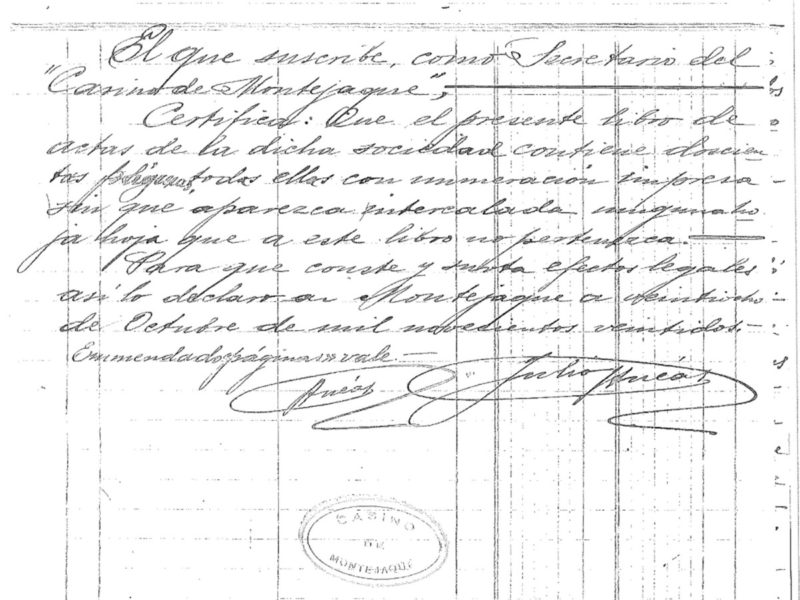 El que suscribe, como Secretario del
"Casino de Montejaque",
Certifica: Que el presente libro de
actas de la dicha sociedad contiene doscien
tas páginas, todas ellas con numeración impresa
sin que aparezca intercalada ninguna ho
ja hoja que a este libro no pertenezca.
Para que conste y surta efectos legales
así lo declaro en Montejaque a veintiocho
de Octubre de mil novecientos veintidos.
Enmendado "páginas" vale.
Julio
CASINO
DE
MONTEJAQUE